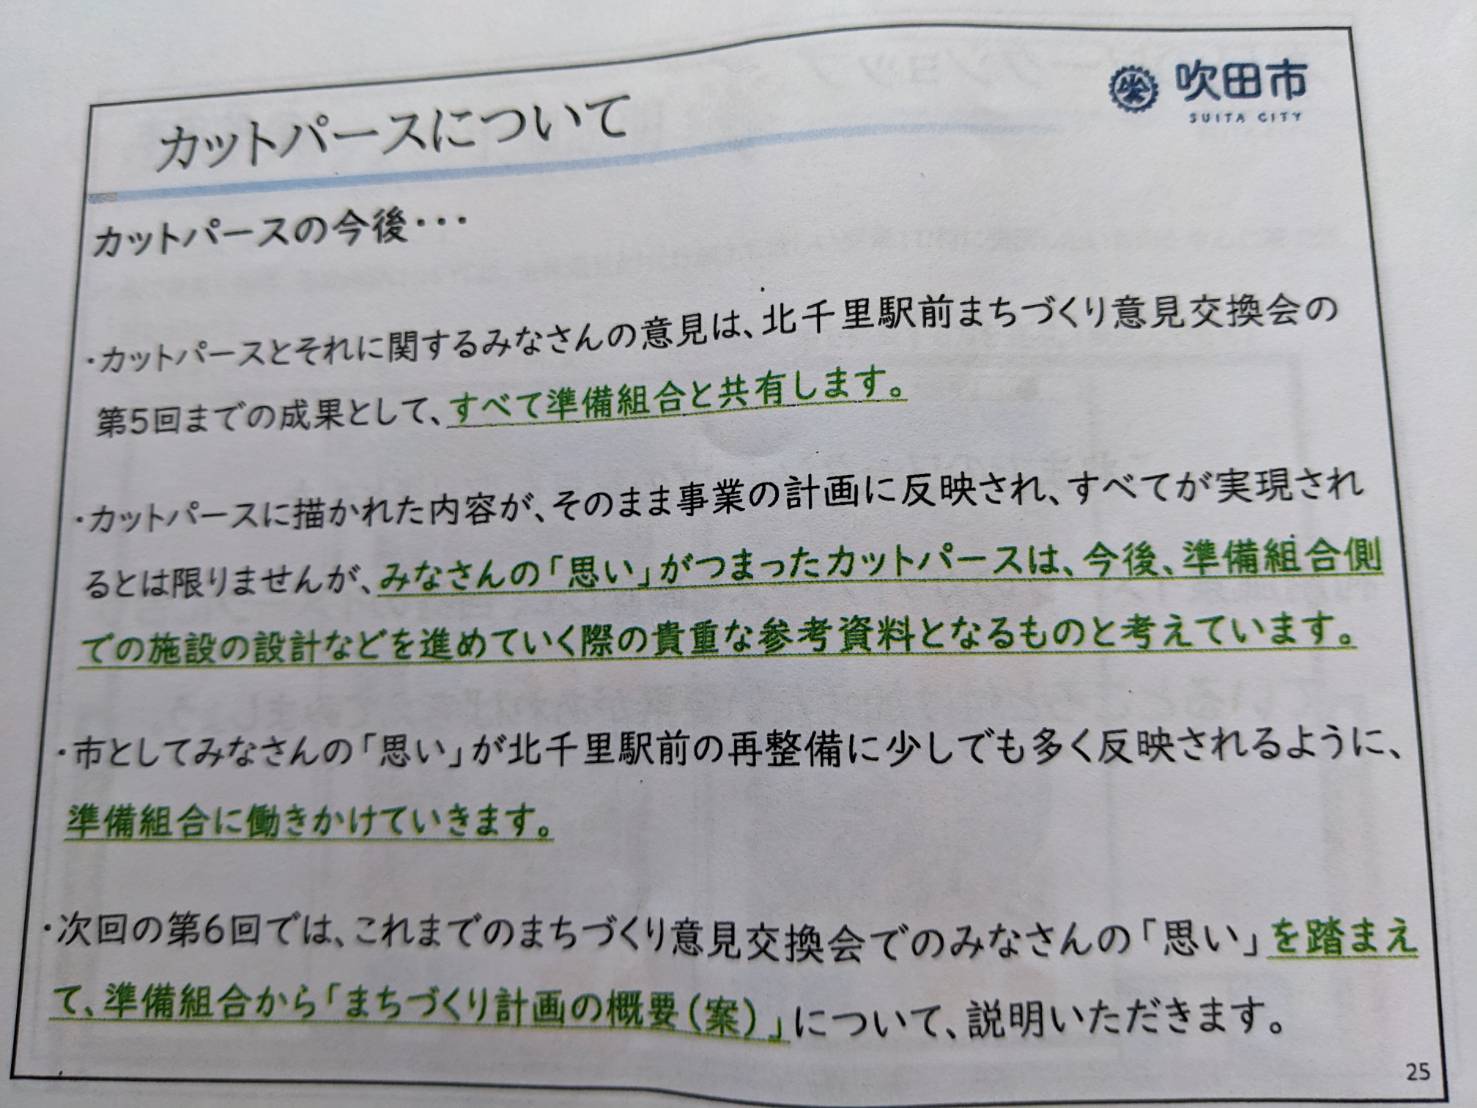 吹田市
SUITA CITY
カットパースについて
カットパースの今後・・・
・カットパースとそれに関するみなさんの意見は、北千里駅前まちづくり意見交換会の
第5回までの成果として、すべて準備組合と共有します。
・カットパースに描かれた内容が、そのまま事業の計画に反映され、すべてが実現され
るとは限りませんが、みなさんの「思い」がつまったカットパースは、今後、準備組合側
での施設の設計などを進めていく際の貴重な参考資料となるものと考えています。
・市としてみなさんの「思い」が北千里駅前の再整備に少しでも多く反映されるように、
準備組合に働きかけていきます。
・次回の第6回では、これまでのまちづくり意見交換会でのみなさんの「思い」を踏まえ
て、準備組合から「まちづくり計画の概要（案）」について、説明いただきます。
25